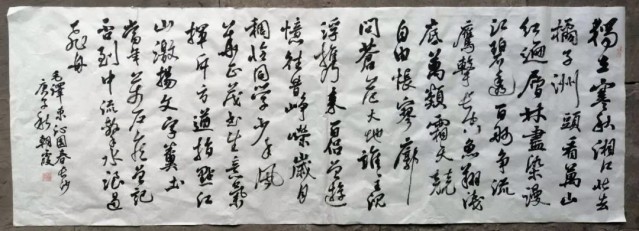 獨立寒秋湘江北去
橘子洲頭看萬山
紅遍層林盡染漫
江碧透百舸争流
鹰擊長空魚翔淺
底萬類霜天競
自由悵寥廓
問蒼茫大地誰主沉
浮携来百侣曾遊
憶往昔峥嵘歲月
稠恰同学少年風
華正茂書生意氣
揮斥方遒指點江
山激揚文字糞土
當年萬户侯曾記
否到中流擊水浪遏
飛舟
毛澤東沁園春長沙
庚子秋